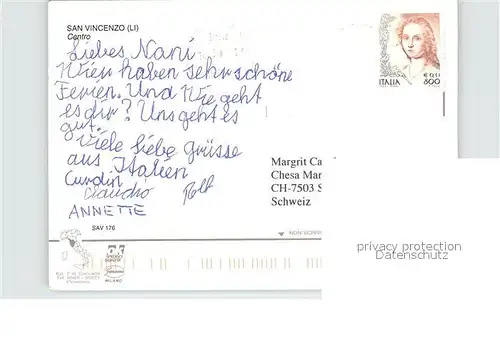 SAN VINCENZO (LI)
Centro
Liebes Nani
Wien haben sehr schöne
Ferien. Und Wie geht
es dir? Uns geht es
gut.
Viele liebe Grüsse
aus Italien
Curdin
Claudio Rolf
ANNETTE
SAV 176
ITALIA
€ 0,41
800
Margrit Ca
Chesa Mar
CH-7503 S
Schweiz
NON SCRIV
MILANO
privacy protection
Datenschutz